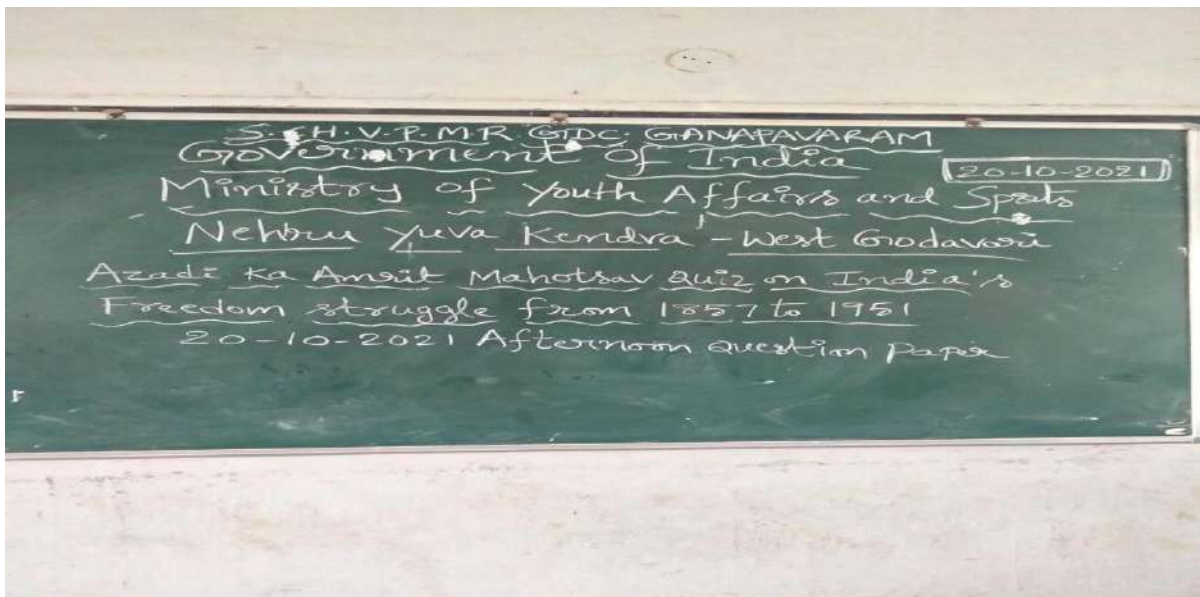 S.CH.V.P.M.R. GDC. GANAPAVARAM
Government of India
20-10-2021
Ministry of Youth Affairs and Sports
Nehru Yuva Kendra - West Godavari
Azadi Ka Amrit Mahotsav Quiz on India's
Freedom struggle from 1857 to 1951
20-10-2021 Afternoon Question Paper